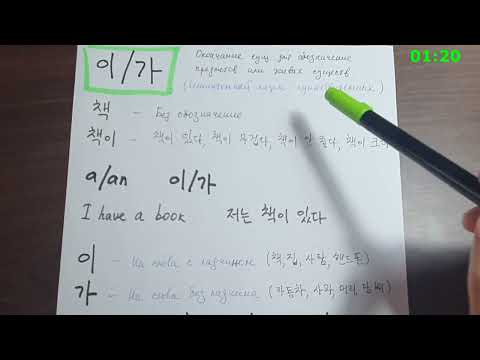 01:20
이/가
Окончание сущ для обозначение
предметов или живых существ
책 - Без обозначение
책이 - 책이 있다, 책이 무겁다, 책이 안 좋다, 책이 크다
a/an 이/가
I have a book 저는 책이 있다
이 - На слова с патчимом (책, 집, 사람, 핸드폰)
가 - На слова без патчима (자동차, 사과,